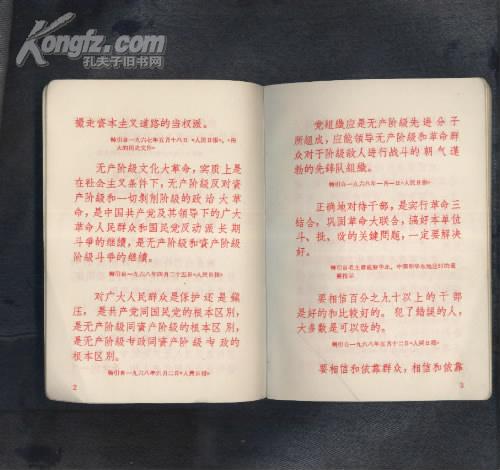 Kongfz.com
孔夫子旧书网
䞍走资本主义道路的当权派。
转引自一九六七年五月十八日《人民日报》,《伟
大的历史文件》
无产阶级文化大革命,实质上是
在社会主义条件下,无产阶级反对资
产阶级和一切剥削阶级的政治大革
命,是中国共产党及其领导下的广大
革命人民群众和国民党反动派长期
斗争的继续,是无产阶级和资产阶级
阶级斗争的继续。
转引自一九六八年四月二十五日《人民日报》
对广大人民群众是保护还是镇
压,是共产党同国民党的根本区别,
是无产阶级同资产阶级的根本区别,
是无产阶级专政同资产阶级专政的
根本区别。
转引自一九六八年六月二日《人民日报》
2
党组织应是无产阶级先进分子
所组成,应能领导无产阶级和革命群
众对于阶级敌人进行战斗的朝气蓬
勃的先锋队组织。
转引自一九六八年一月一日《人民日报》
正确地对待干部,是实行革命三
结合,巩固革命大联合,搞好本单位
斗、批、改的关键问题,一定要解决
好。
转引自毛主席视察华北、中南和华东地区时的重
要指示
要相信百分之九十以上的干部
是好的和比较好的。犯了错误的人,
大多数是可以改的。
转引自一九六八年五月十二日《人民日报》
要相信和依靠群众,相信和依靠
3